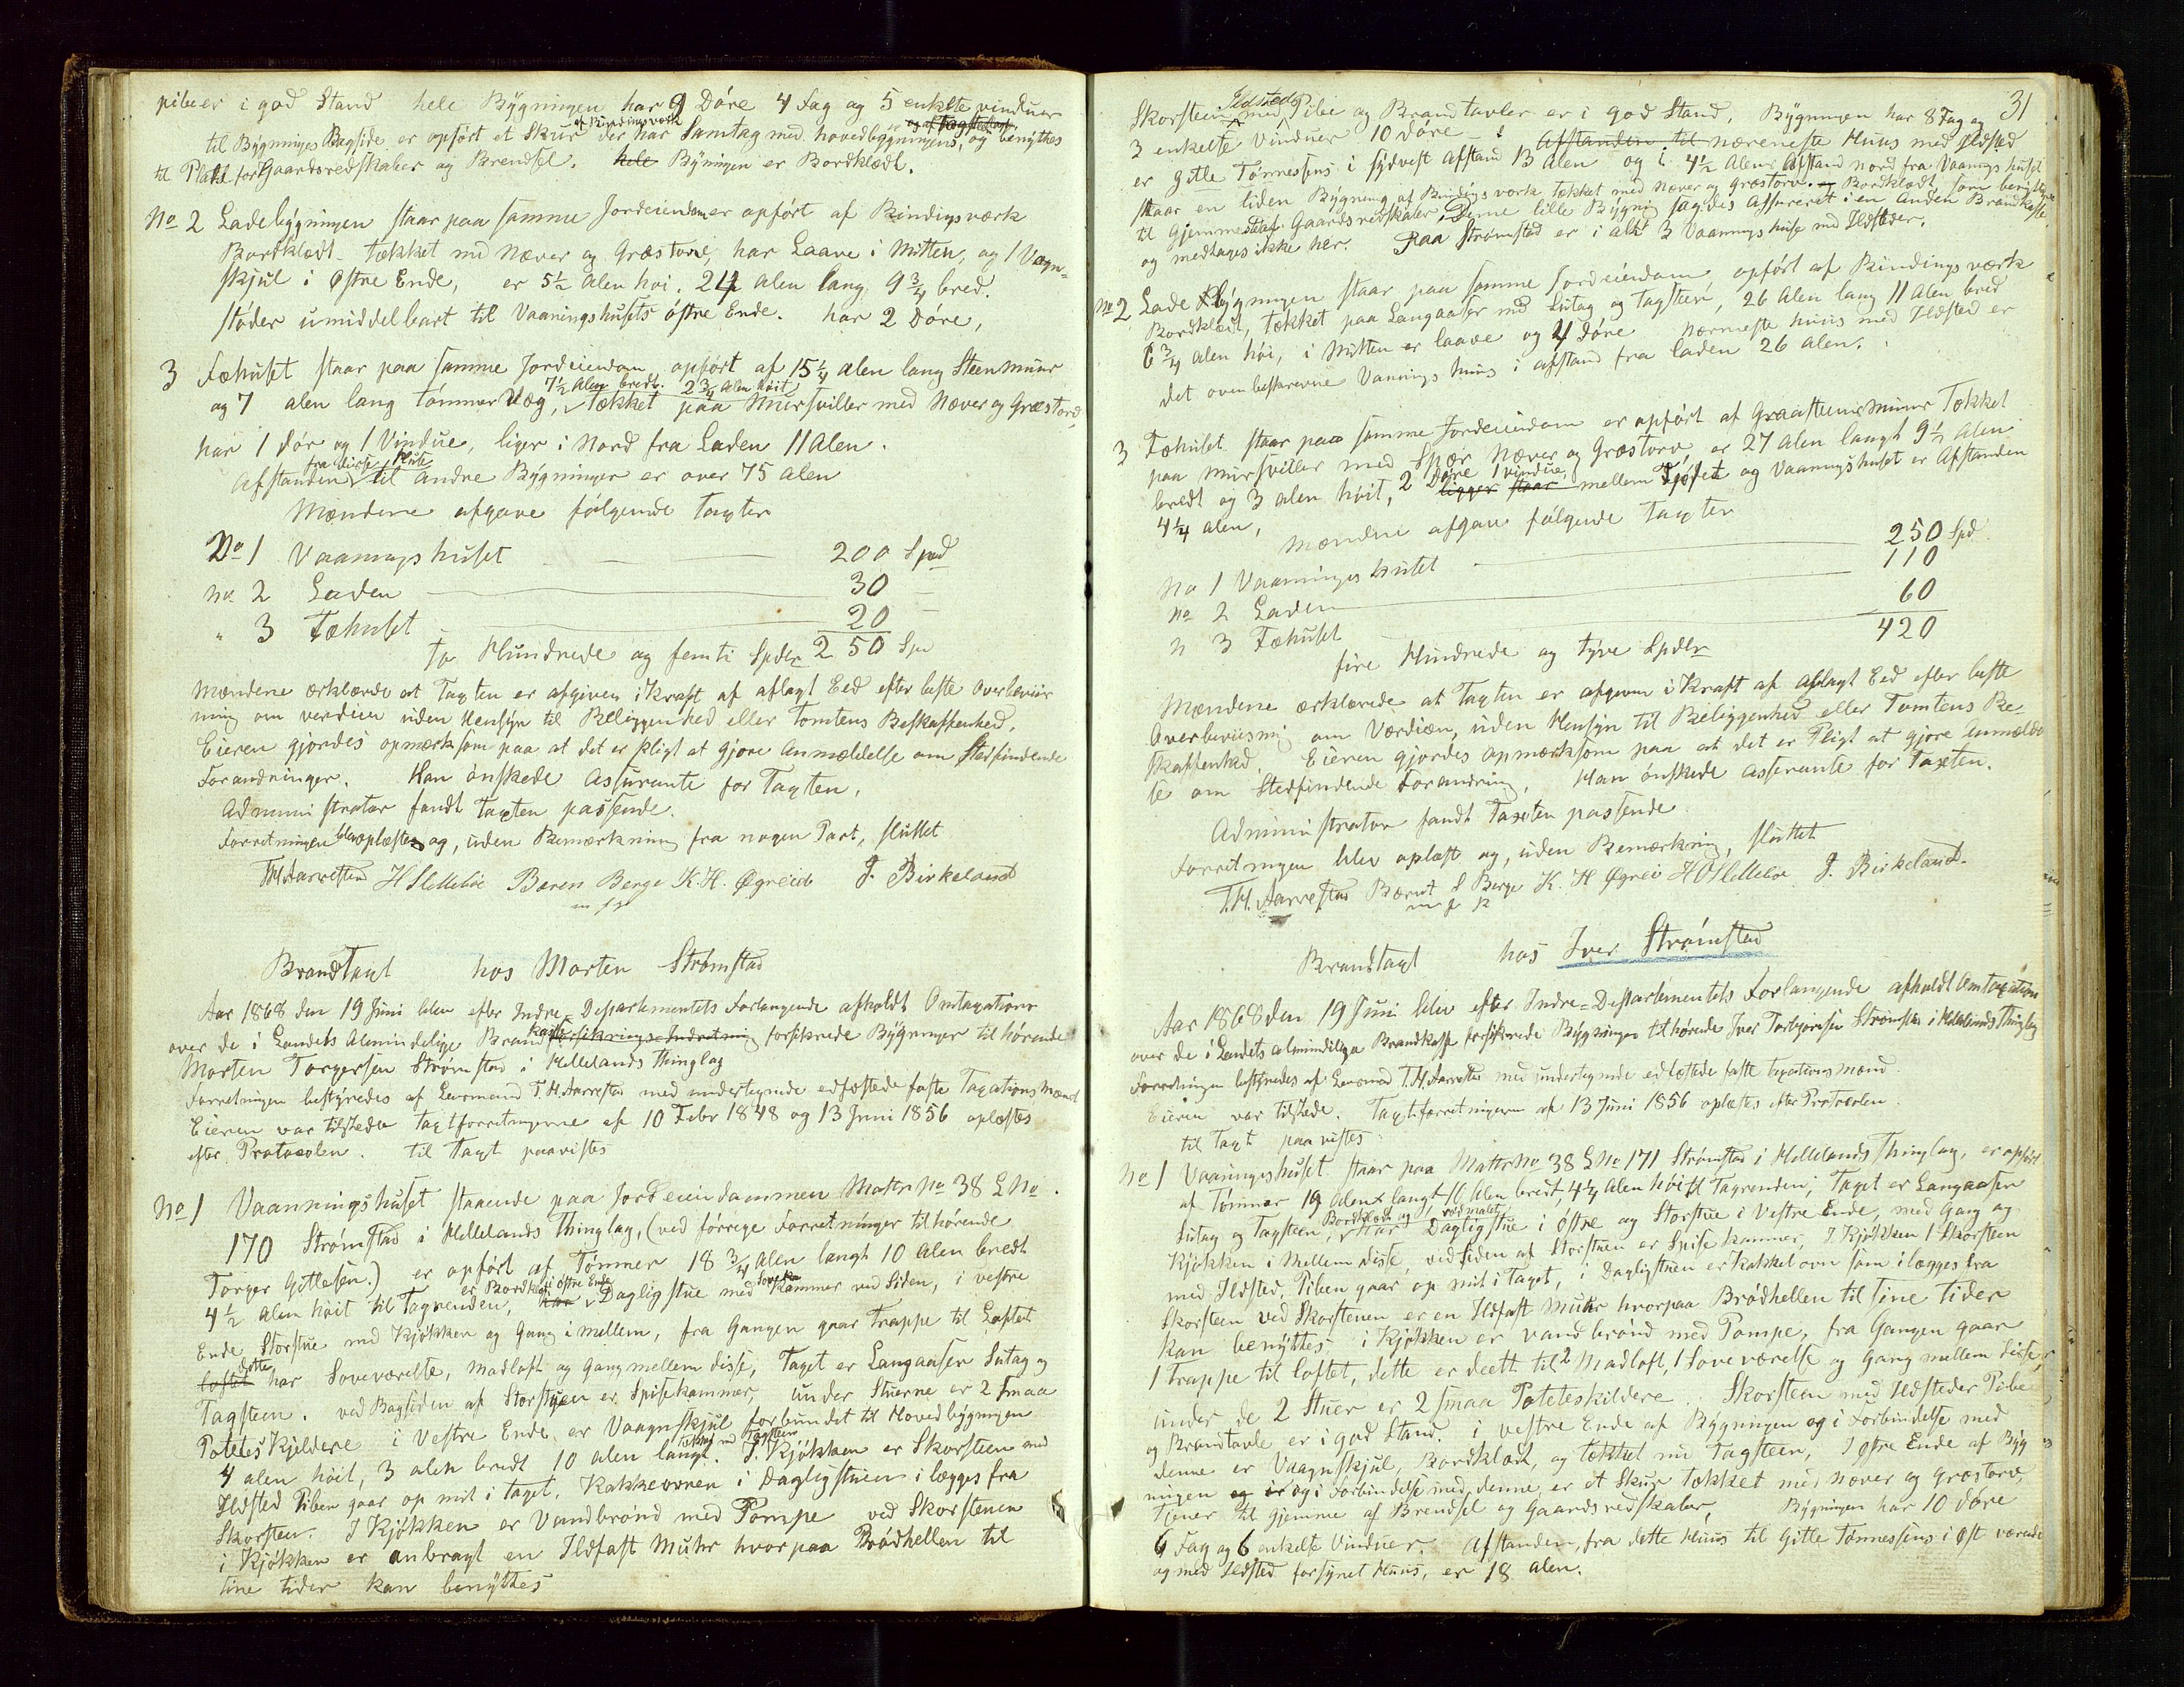 piber er i god Stand hele Bygningen har 9 Døre 4 Fag og 5 enkelte vinduer
til Bygninges Bagside er opført et Skur af Bindingsværk der har Samtag med hovedbygningens, og benyttes
til Plads for Gaardsredskaber og Brendsel. hele Byningen er Bordklædt.
No 2 Ladebygningen staar paa samme Jordeiendom er opført af Bindingsværk
Bordklædt tækket med Næver og Græstorv, har Laave i Mitten, og 1 Vogn-
skjul i Østre Ende, er 5½ Alen høi. 24 alen lang 9¾ bred.
støder umiddelbart til Vaaningshusets østre Ende. har 2 Døre,
3 Fæhuset staar paa samme Jordeiendom opført af 15¼ alen lang Steenmuur
og 7 alen lang tømmer Væg, 7½ Alen bredt. 2¾ Alen høit tækket paa Mursviller med Næver og Græstorv,
har 1 dør og 1 Vindue, liger i Nord fra Laden 11 Alen.
Afstanden fra disse Huse til andre Bygninger er over 75 alen
Mændene afgave følgende Taxter
No 1 Vaaningshuset 200 Spd
No 2 Laden 30 –
" 3 Fæhuset 20 –
To Hundrede og femti Spdlr 250 Spd
Mændene erklærede at Taxten er afgiven i Kraft af aflagt Eed efter beste Overbeviis-
ning om verdien uden Hensyn til Beliggenhed eller Tomtens Beskaffenhed.
Eieren gjordes opmærksom paa at det er Pligt at gjøre Anmeldelse om Stedfindende
Forandringer. Han ønskede Assurante for Taxten.
Administrator fandt Taxten passende.
Forretningen blev oplæst og, uden Bemærkning fra nogen Part, sluttet
T.H. Aarrestad H Slettebø Baren Berge K. H. Øgreid J. Birkeland
m f p
Brandtaxt hos Morten Strømstad
Aar 1868 den 19 Juni blev efter Indre-Departementets Forlangende afholdt Omtaxation
over de i Landets Almindelige Brandkasse forsikrings Indretning forsikrede Bygninger tilhørende
Morten Torgersen Strømstad i Hellelands Thinglag
Forretningen bestyredes af Lensmand T. H. Aarrestad med undertegnede edfæstede faste Taxations Mænd
Eieren var tilstede taxtforretningerne af 10 Febr 1848 og 13 Juni 1856 oplæstes
efter Protocolen. til Taxt paavistes
No 1 Vaaningshuset staaende paa Jordeiendommen Mattr No 38 L No.
170 Strømstad i Hellelands Thinglag, (ved førrege Forretninger tilhørende
Torger Gitlesen.) er opført af Tømmer 18¾ Alen langt 10 Alen bredt
4½ Alen høit til Tagrenden, er Bordklædt i østre Ende har Dagligstue med Sove Kammer ved Siden, i vestre
Ende Storstue med Kjøkken og Gang imellem, fra Gangen gaar Trappe til Loftet
loftet dette har Soveværelse, Madloft og Gang mellem disse, Taget er Langaaser Sutag og
Tagsteen. ved Bagsiden af Storstuen er Spisekammer, under Stuerne er 2 smaa
Potetes Kjeldere i Vestre Ende er Vaagnskjul forbundet til Hovedbygningen
4 alen høit, 3 alen bredt 10 alen langt. Tækket med Tagsteen I Kjøkken er Skorsteen med
Ildsted Piben gaar op mit i taget. Kakkelovnen i Dagligstuen ilægges fra
Skorsteen. I Kjøkken er Vandbrønd med Pompe ved Skorstenen
i Kjøkken er anbragt en Ildfast Muhr hvorpaa Brødhellen til
sine tider kan benyttes
31
Skorsteen med Ildsteds Pibe og Brandtavler er i god Stand, Bygningen har 8 Fag og
3 enkelte Vinduer 10 Døre – Afstanden til nærmeste Huus med Ildsted
er Gitle Tønnessens i sydvest afstand 13 Alen og i 4½ Alens Afstand nord fra Vaaningshuset
staar en liden Bygning af Bindingsværk tækket med næver og græstorv. og Bordklædt som benyttes
til Gjemmested af Gaardsredskaber, Denne lille Bygnig sagdes Assureret i en anden Brandkasse
og medtages ikke her. Paa Strømstad er i alt 3 Vaaningshuse med Ildsteder.
No 2 Lade Bygningen staar paa samme Jordeiendom, opført af Bindingsværk
Bordklædt, tækket paa Langaaser med Sutag og Tagsteen, 26 Alen lang 11 Alen bred
6¾ alen høi, i Mitten er laave og 4 døre nærmeste huus med Ildsted er
det ovenbeskrevne Vaaningshuus i afstand fra laden 26 alen.
3 Fæhuset staar paa samme Jordeiendom er opført af Graasteensmuur Tækket
paa Mursviller med Spær Næver og Græstorv, er 27 Alen langt 9½ Alen
bredt og 3 alen høit, 2 Døre 1 vindue, ligger staar mellem Fjøset og Vaaningshuset er Afstanden
4¼ alen,
Mændene afgav følgende Taxter
No 1 Vaaningshuset 250 Spd
No 2 Laden 110
" 3 Fæhuset 60
420
fire Hundrede og tyve Spdlr
Mændene erklærede at Taxten er afgiven i Kraft af aflagt Eed efter beste
Overbeviisning om Værdien, uden Hensyn til Beliggenhed eller Tomtens Be-
skaffenhed. Eieren gjordes opmærksom paa at det er Pligt at gjøre Anmeldel
se om Stedfindende Forandring, Han ønskede Asserante for Taxten.
Administrator fandt Taxten passende
Forretningen blev oplæst og, uden Bemærkning, sluttet
T.H. Aarrestad Bærnt S Berge K. H Øgrei H O Slettebø J. Birkeland.
m f p
Brandtaxt hos Iver Strømstad
Aar 1868 den 19 Juni blev efter Indre-Departementets Forlangende afholdt Omtaxation
over de i Landets almindelige Brandkasse forsikrede Bygninger tilhørende Iver Torbjørnsen Strømstad i Hellelands Thinglag
Forretningen bestyredes af Lensmand T. H. Aarrestad med undertegnede edfæstede faste taxationsmænd.
Eieren var tilstede. Taxtforretningerne af 13 Juni 1856 oplæstes efter Protocolen.
til Taxt paavistes
No 1 Vaaningshuset staar paa Mattr No 38 L No 171 Strømstad i Hellelands Thinglag, er opført
af Tømmer 19 Alen langt 11 Alen bredt, 4¼ Alen høit til Tagrenden, Taget er Langaaser
Sutag og Tagsteen, Bordklædt og rødmalet har Dagligstue i Østre og Storstue i Vestre Ende, med Gang og
Kjøkken imellem disse, ved siden af Storstuen er Spisekammer, I Kjøkken 1 Skorsteen
med Ildsted, Piben gaar op mit i Taget, i Dagligstuen er Kakkelovn som ilægges fra
Skorsteen ved Skorstenen er en Ildfast Muhr hvorpaa Brødhellen til sine tider
kan benyttes, i Kjøkken er vandbrønd med Pompe, fra Gangen gaar
1 Trappe til loftet, dette er deelt til 2 Madloft, 1 Soveværelse og Gang mellem disse,
under de 2 Stuer er 2 smaa Poteteskjeldere. Skorsteen med Ildsteder Pibe
og Brandtavle er i god Stand. i Vestre Ende af Bygningen og i Forbindelse med
denne er Vaagnskjul, Bordklædt, og tækket med Tagsteen, I østre Ende af Byg
ningen og er og i Forbindelse med denne, er et Skur tækket med næver og græstorv,
tjener til gjemme af Brendsel og Gaardsredskaber, Bygningen har 10 døre
6 Fag og 6 enkelte Vinduer. Afstanden, fra dette Huus til Gitle Tønnessens i Øst værende
og med Ildsted forsynet Huus, er 18 alen.